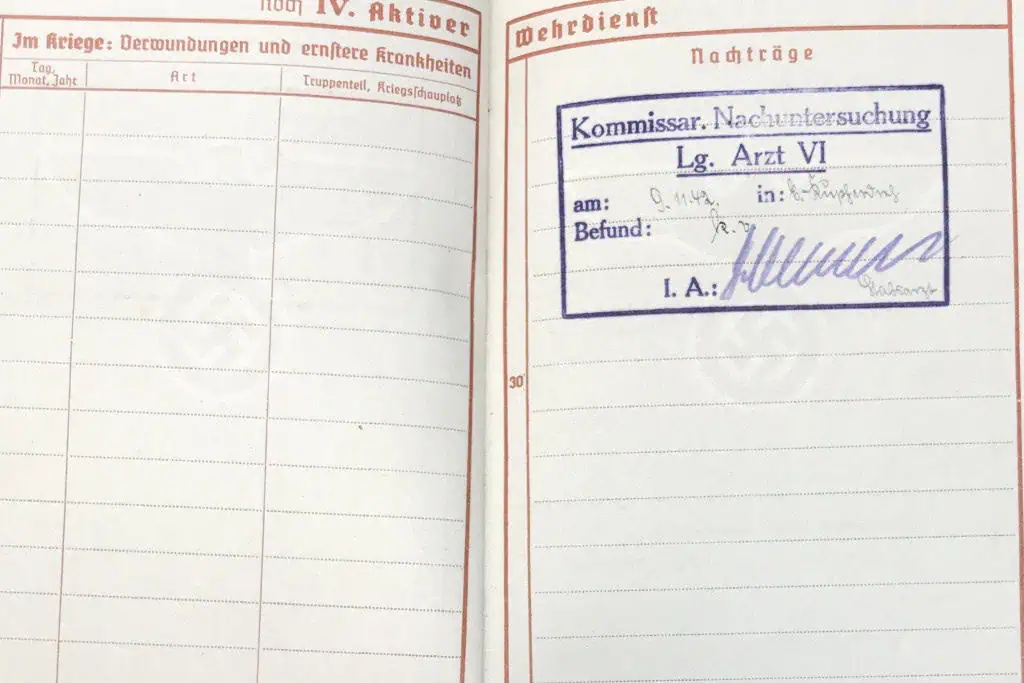 noch IV. Aktiver
Im Kriege: Verwundungen und ernstere Krankheiten
Tag, Monat, Jahr
Art
Truppenteil, Kriegsschauplatz
Wehrdienst
Nachträge
Kommissar. Nachuntersuchung
Lg. Arzt VI
am: 9.11.42. in:
Befund: k.v.
I. A.:
Stabsarzt
30